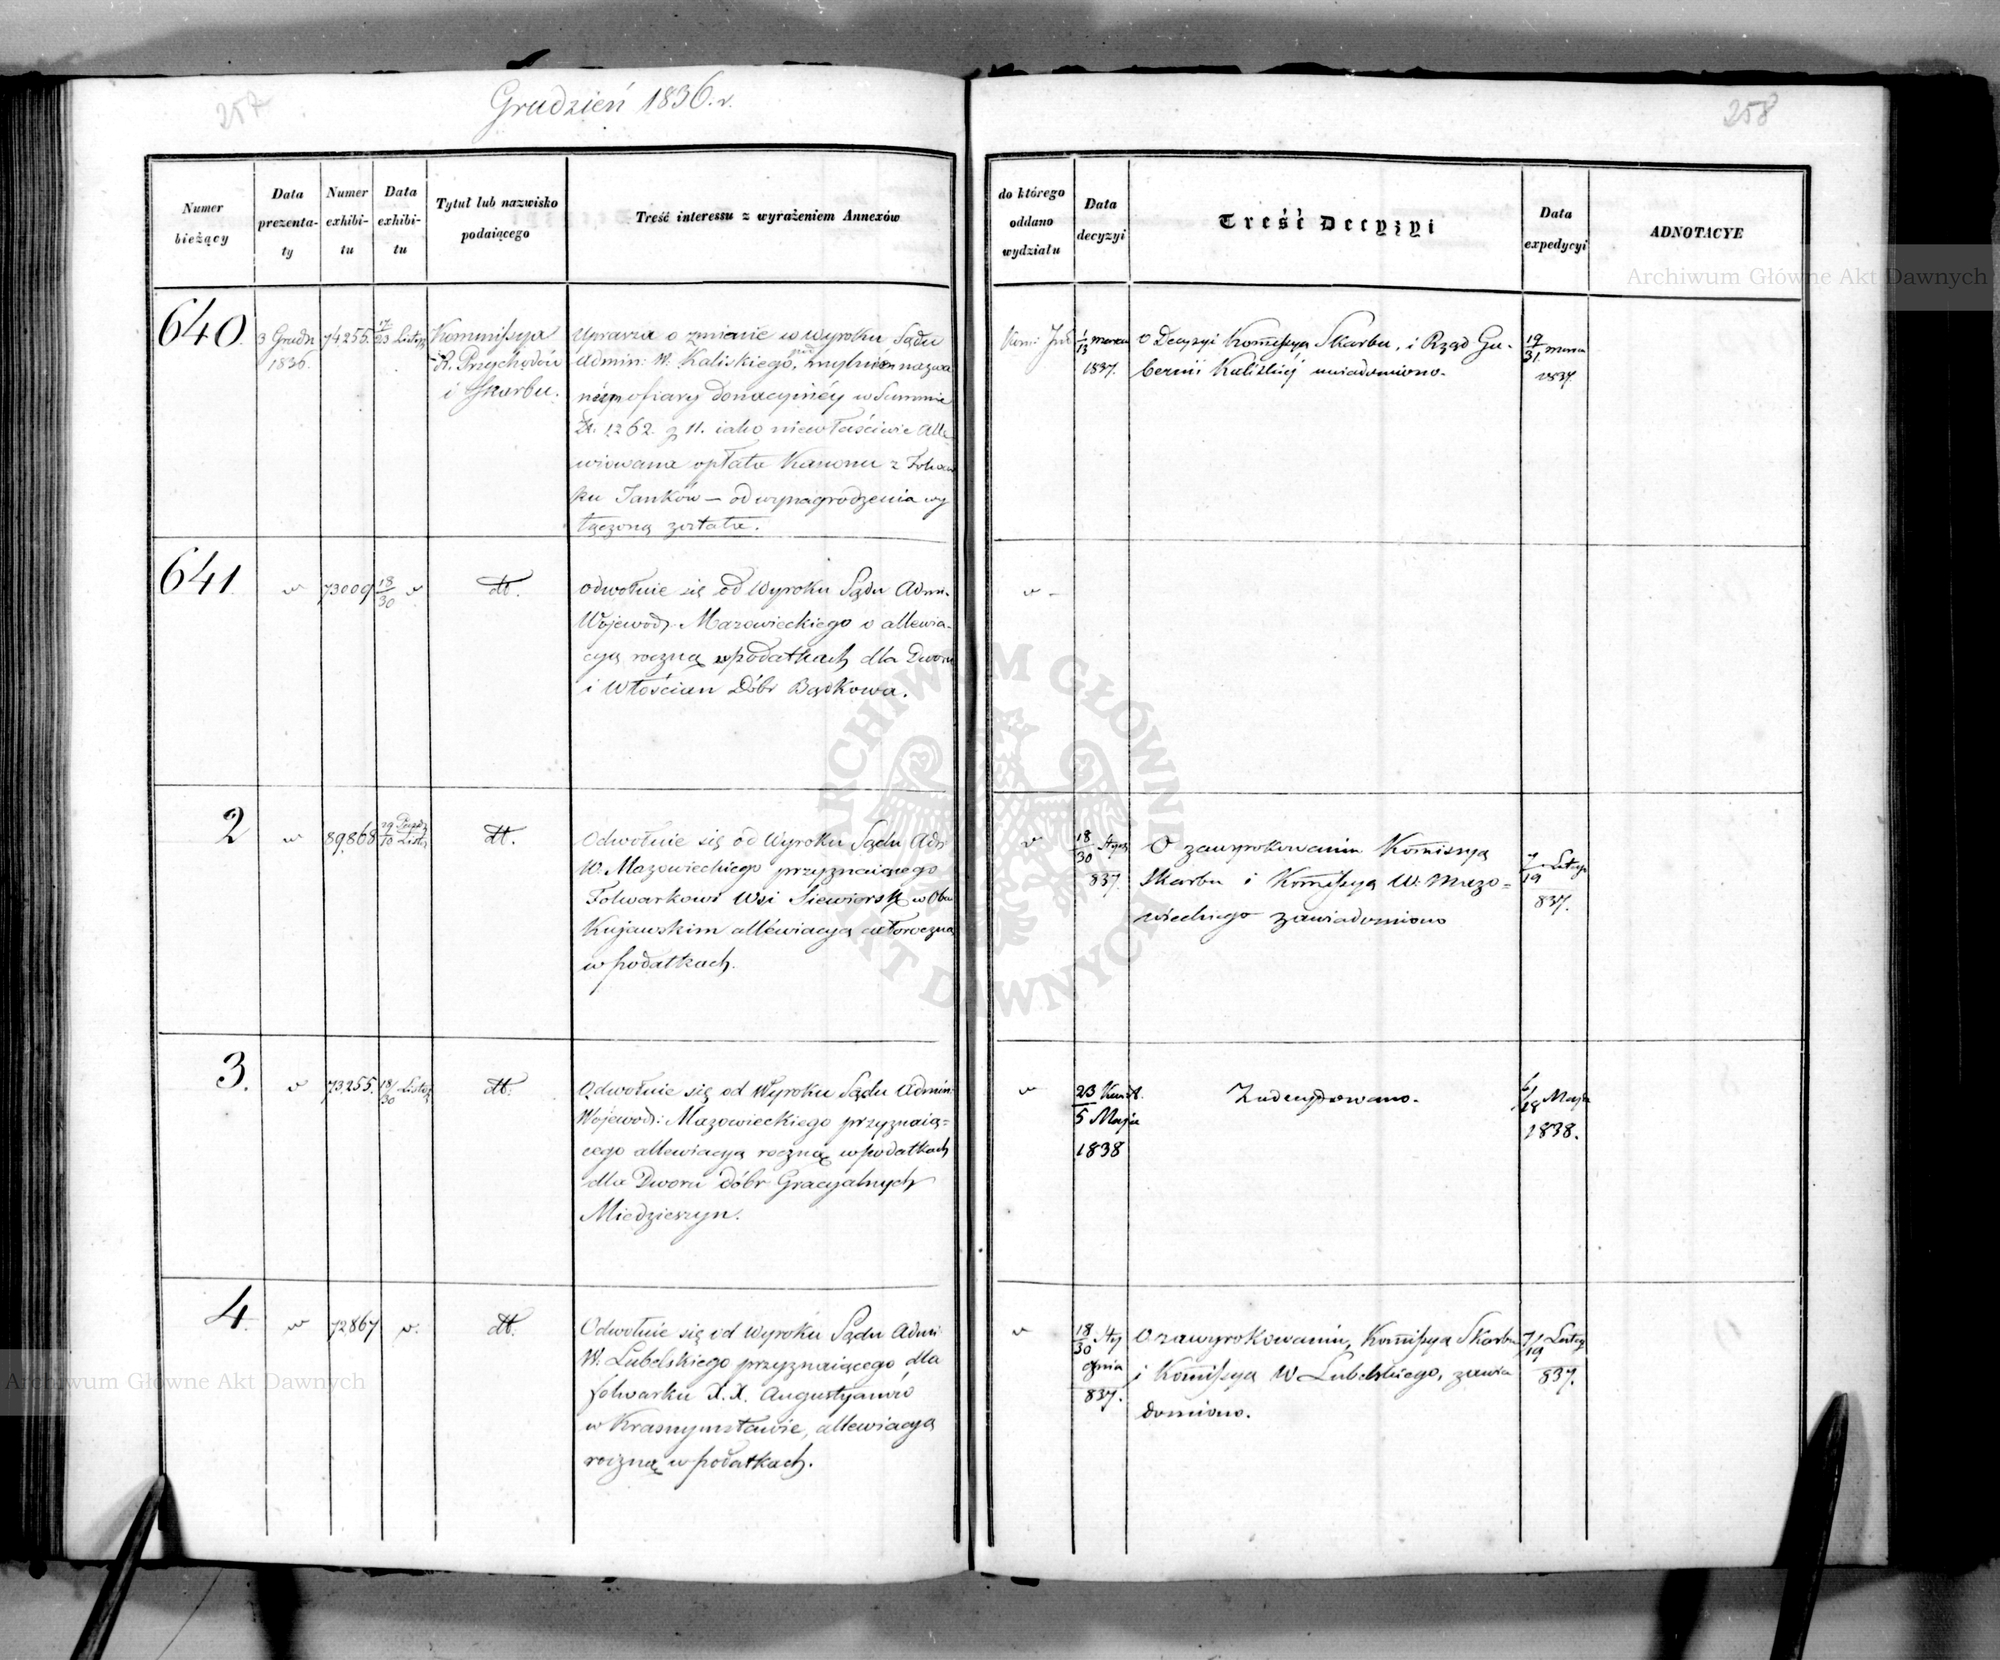 257
Grudzień 1836. r.
258
Numer bieżący
Data prezenta-ty
Numer exhibi-tu
Data exhibi-tu
Tytuł lub nazwisko podaiącego
Treść interessu z wyrażeniem Annexów
do którego oddano wydziału
Data decyzyi
Treść Decyzyi
Data expedycyi
ADNOTACYE
640.
3 Grudn
1836.
74255.
17/23 Listp
Kommissya
R. Przychodów
i Skarbu.
Uprasza o zmianie w Wyroku Sądu
Admin: W. Kaliskiego, pod mylném nazwa
niem ofiary donacyinéy w Summie
Zł. 1262. g 11. iako niewłaściwie Alle
wiowana opłata Kanonu z Folwar
ku Janków — od wynagrodzenia wy
łączoną została.
1/13 marca
1837.
O Decyzyi Kommissya Skarbu, i Rząd Gu-
bernii Kaliskiéj uwiadomiono.
19/31 marca
1837.
641.
"
73009
18/30 "
dt.
Odwołuie się od Wyroku Sądu Admi.
Wojewod. Mazowieckiego o allewia-
cyą roczną w podatkach dla Dworu
i Włościan Dóbr Bądkowa.
" -
2
"
89868
29/10 Listp
dt.
Odwołuie się od Wyroku Sądu Adm
W. Mazowieckiego przyznaiącego
Folwarkowi Wsi Siewiersk w Obw
Kujawskim allewiacyą całoroczną
w podatkach.
"
18/30 Stycz
837.
O zawyrokowaniu Komissya
Skarbu i Komissya W. Mazo-
wieckiego zawiadomiono
7/19 Lutego
837.
3.
"
73255.
18/30 Listp
dt.
Odwołuie się od Wyroku Sądu Admin
Wojewod: Mazowieckiego przyznaią-
cego allewiacyą roczną w podatkach
dla Dworu dóbr Gracyalnych
Miedzieszyn.
"
23 Kwiet.
5 Maja
1838
Zadecydowano.
6/18 Maja
1838.
4.
"
72867
".
dt.
Odwołuie się od Wyroku Sądu Admi
W. Lubelskiego przyznaiącego dla
folwarku X.X. Augustyanów
w Krasnymstawie, allewiacyą
roczną w podatkach.
"
18/30 Sty
cznia
837.
O zawyrokowaniu, Komissya Skarbu
i Komissya W Lubelskiego, zawia
domiono.
7/19 Lutego
837.
Archiwum Główne Akt Dawnych
Archiwum Główne Akt Dawnych
ARCHIWUM GŁÓWNE AKT DAWNYCH